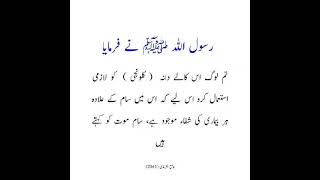 رسول اللہ ﷺ نے فرمایا
تم لوگ اس کالے دانہ ( کلونجی ) کو لازمی
استعمال کرو اس لیے کہ اس میں سام کے علاوہ
ہر بیماری کی شفاء موجود ہے، سام موت کو کہتے
ہیں